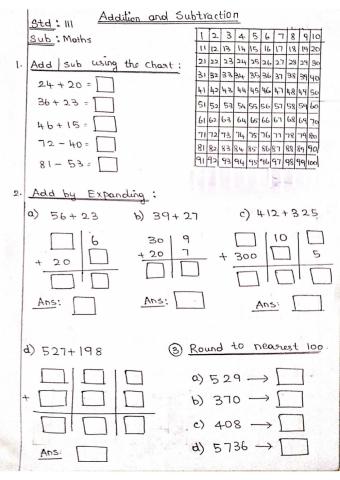 Addition and Subtraction
Std : III
Sub : Maths
1 2 3 4 5 6 7 8 9 10
11 12 13 14 15 16 17 18 19 20
21 22 23 24 25 26 27 28 29 30
31 32 33 34 35 36 37 38 39 40
41 42 43 44 45 46 47 48 49 50
51 52 53 54 55 56 57 58 59 60
61 62 63 64 65 66 67 68 69 70
71 72 73 74 75 76 77 78 79 80
81 82 83 84 85 86 87 88 89 90
91 92 93 94 95 96 97 98 99 100
1. Add / sub using the chart :
24 + 20 =
36 + 23 =
46 + 15 =
72 - 40 =
81 - 53 =
2. Add by Expanding :
a) 56 + 23 b) 39 + 27 c) 412 + 325
6 30 9 10
+ 20 + 20 7 + 300 5
Ans: Ans: Ans:
d) 527 + 198
+
Ans:
3 Round to nearest 100.
a) 529 →
b) 370 →
c) 408 →
d) 5736 →